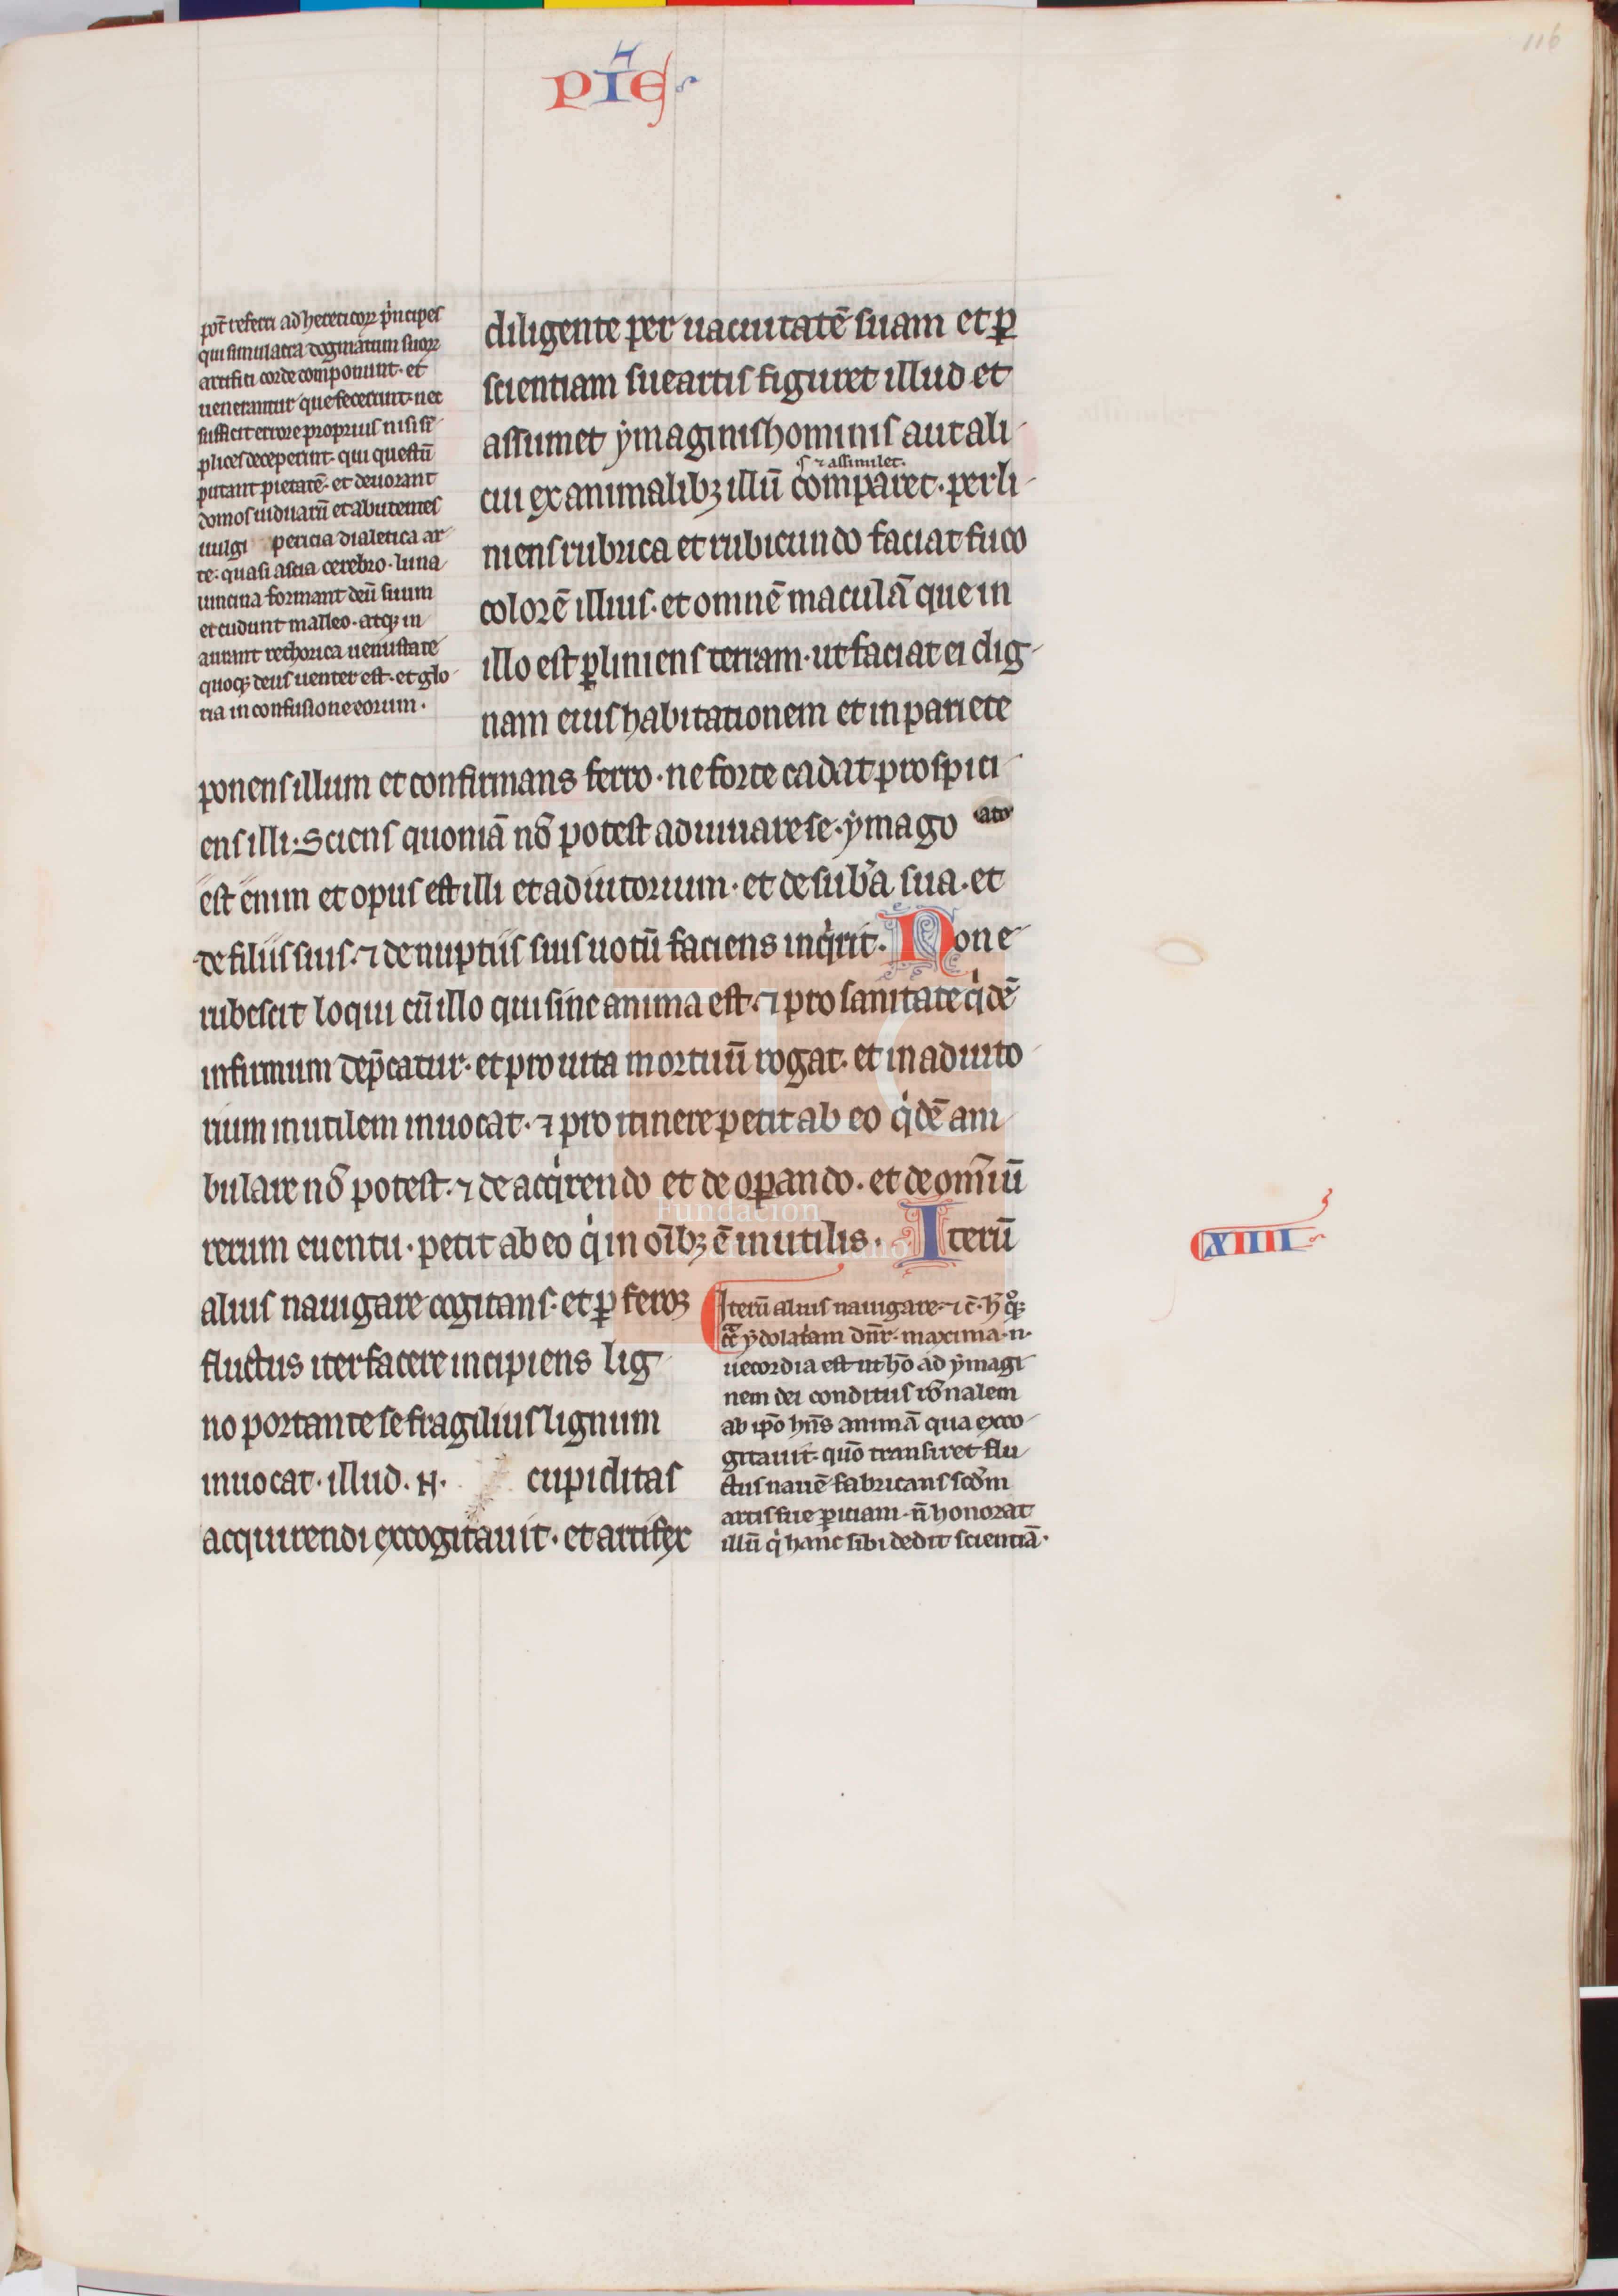 116
pīē
pot̄ referri ad hereticoꝝ pͥncipes
qui simulacra dogmatum suoꝝ
artifiti corde componunt· et
uenerantur que fecerunt· nec
sufficit errore proprius nisi sī
plices deceperint· qui questū
putant pietatē· et deuorant
domos uiduarū et abutentes
uulgi pericia dialetica ar
te· quasi ascia cerebro· luna
uincina formant deū suum
et cudunt malleo· atqꝫ in
aurant rethorica uenustate
quoqꝫ deus uenter est· et glo
ria in confusione eorum·
diligente per uacuitatē suam et ꝑ
scientiam sue artis figuret illud et
assumet ẏmaginis hominis aut ali
⁊ assimilet·
cui ex animalibꝫ illū comparet· perli
niens rubrica et rubicundo faciat fuco
colorē illius· et omnē maculā que in
illo est ꝑliniens terram· ut faciat ei dig
nam eius habitationem et in pariete
ponens illum et confirmans ferro· ne forte cadat prospici
ens illi· Sciens quoniā nō potest adiuuare se· ẏmago
est enim et opus est illi et adiutorium· et de sub̄a sua· et
de filiis suis· ⁊ de nuptiis suis uotū faciens inqͥrit· Non e
rubescit loqui cū illo qui sine anima est· ⁊ pro sanitate qͥdē
infirmum dep̄catur· et pro uita mortuū rogat· et in adiuto
rium inutilem inuocat· ⁊ pro itinere petit ab eo qͥdē am
bulare nō potest· ⁊ de acqͥrendo et de oꝑando· et de om̄iū
rerum euentu· petit ab eo qͥ in oībꝫ ē inutilis· Iterū
XIIII
alius nauigare cogitans· et ꝑ feroꝫ
fluctus iter facere incipiens lig
no portante se fragilius lignum
inuocat· illud· N· cupiditas
acquirendi excogitauit· et artifex
Iterū alius nauigare· ⁊ c̄·
ẏdolatram maxima· n·
uecordia est ut hō ad ẏmagi
nem dei conditus rōnalem
ab ip̄o hn̄s animā qua exco
gitauit· quō transiret flu
ctus nauē fabricans scdm̄
artis sue ꝑitiam· n̄ honorat
illū qͥ hanc sibi dedit scientiā·
Fundación